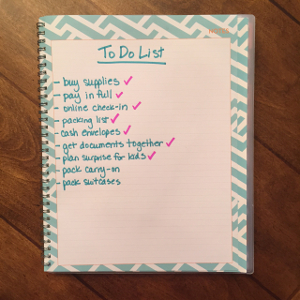 To Do List
- buy supplies ✓
- pay in full ✓
- online check-in ✓
- packing list ✓
- cash envelopes ✓
- get documents together ✓
- plan surprise for kids ✓
- pack carry-on
- pack suitcases